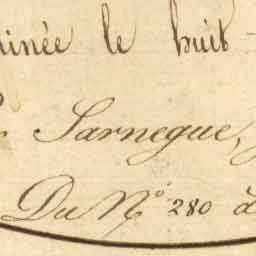 inée le huit
Sarnegue,
Du N.º 280 à